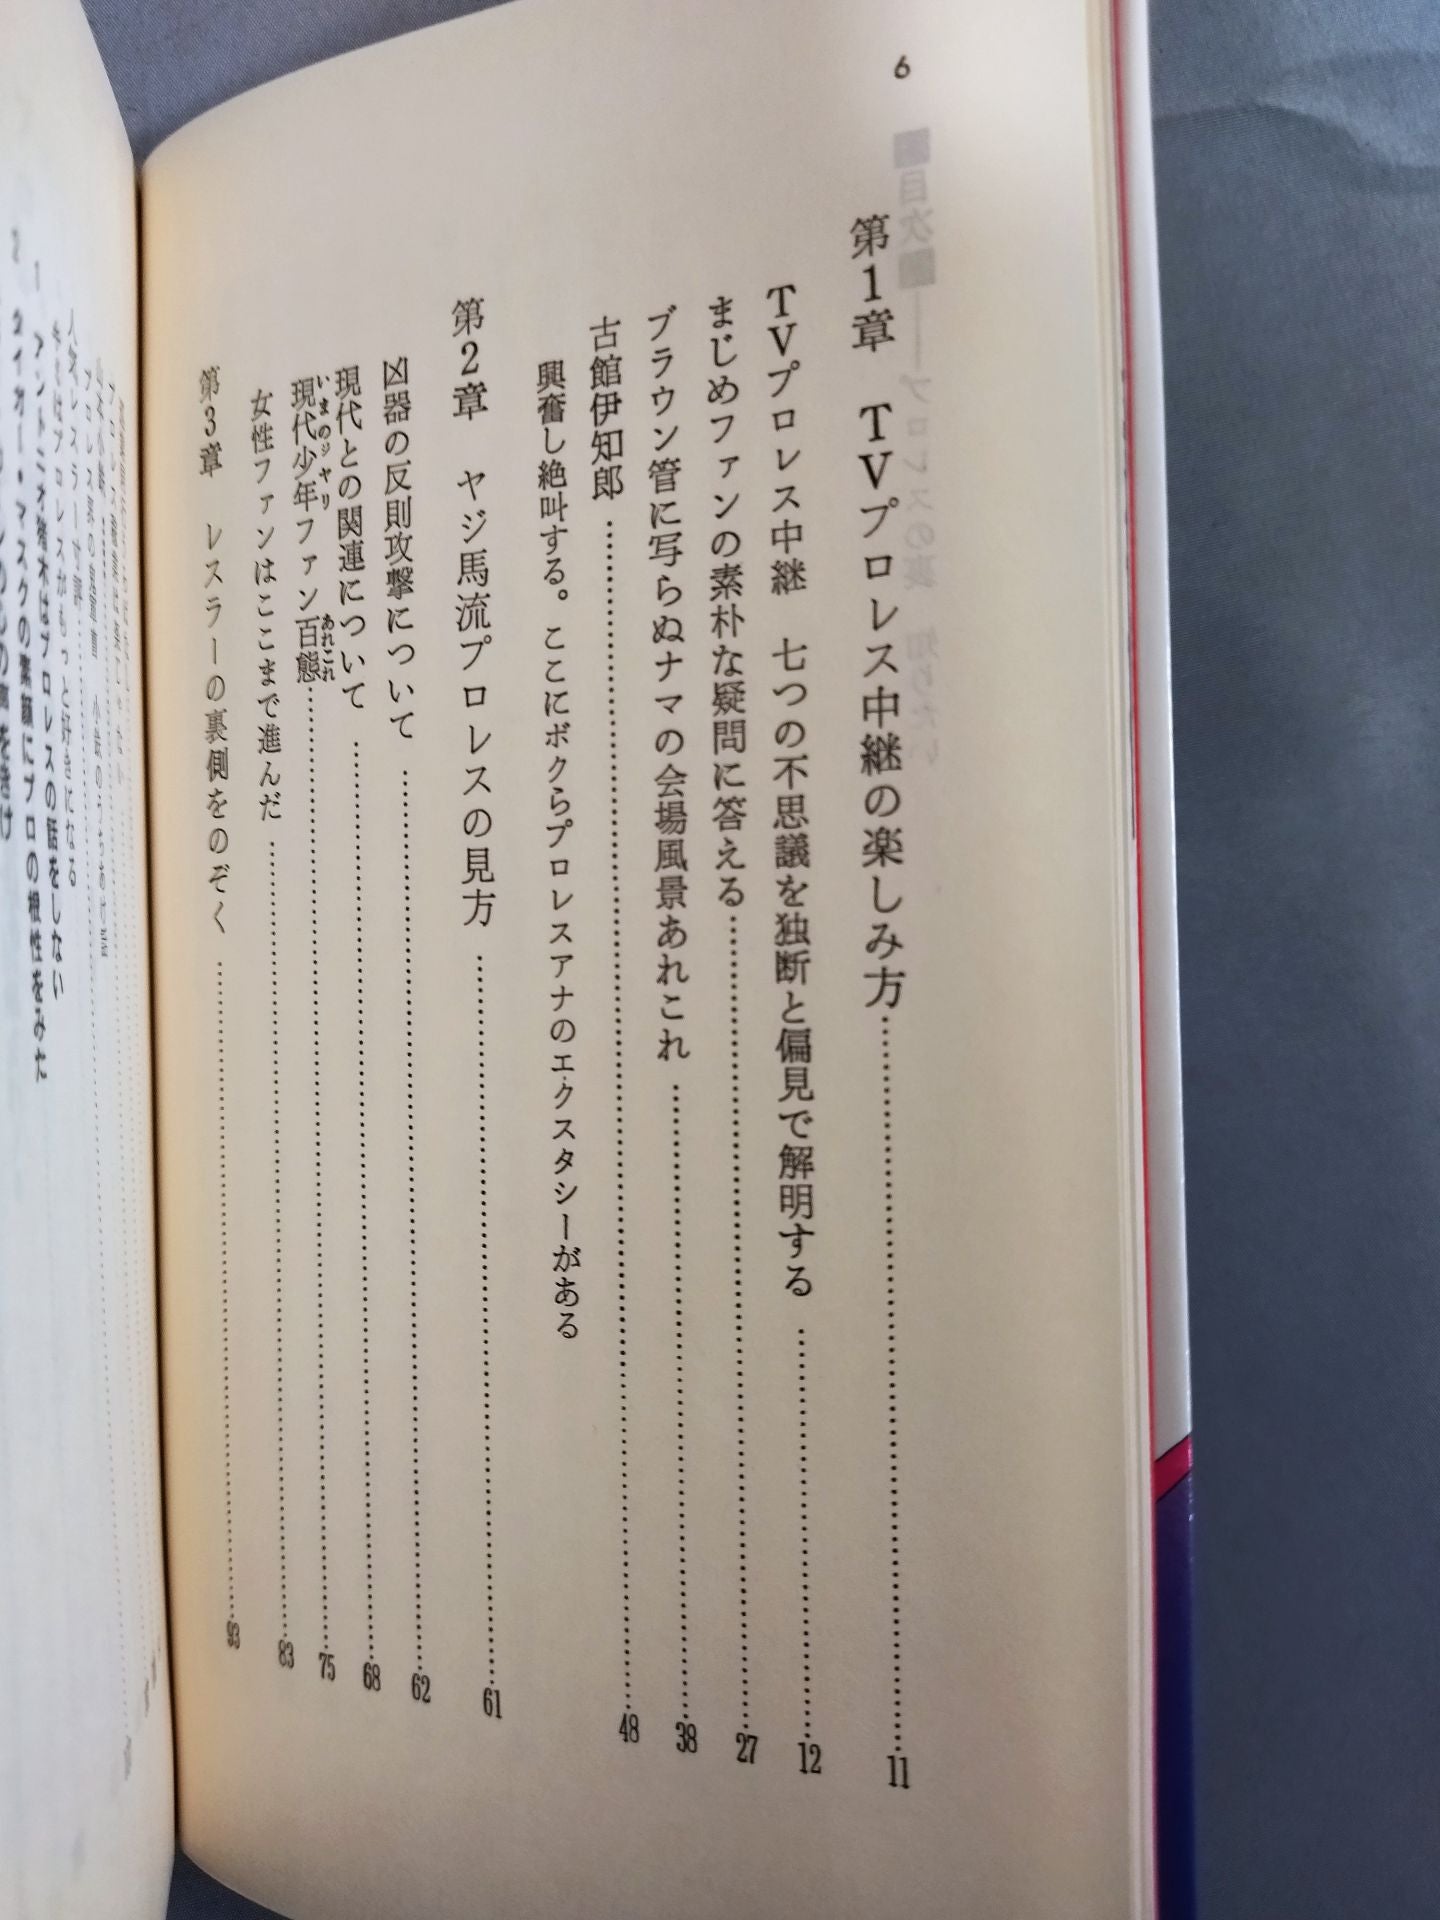 6
■目次■――プロレスの裏 知りたい
第1章 TVプロレス中継の楽しみ方……11
TVプロレス中継 七つの不思議を独断と偏見で解明する……12
まじめファンの素朴な疑問に答える……27
ブラウン管に写らぬナマの会場風景あれこれ……38
古館伊知郎……48
興奮し絶叫する。ここにボクらプロレスアナのエクスタシーがある
第2章 ヤジ馬流プロレスの見方……61
凶器の反則攻撃について……62
現代との関連について……68
いまのジャリ あれこれ
現代少年ファン百態……75
女性ファンはここまで進んだ……83
第3章 レスラーの裏側をのぞく……93
プロレスがもっと好きになる
1 アントニオ猪木はプロレスの話をしない
2 タイガー・マスクの素顔にプロの根性をみた